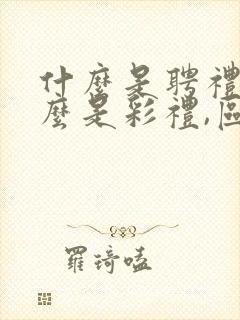 什麼是聘禮
麼是彩禮,區
羅琦嗑